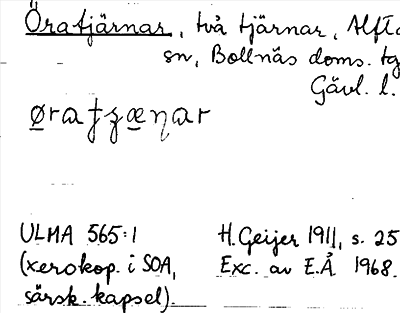 Öratjärnar, två tjärnar, Alfta
sn, Bollnäs doms. tg
Gävl. l.
øratʒænar
ULMA 565:1
(xerokop. i SOA,
särsk. kapsel).
H. Geijer 1911, s. 25
Exc. av E.Å 1968.